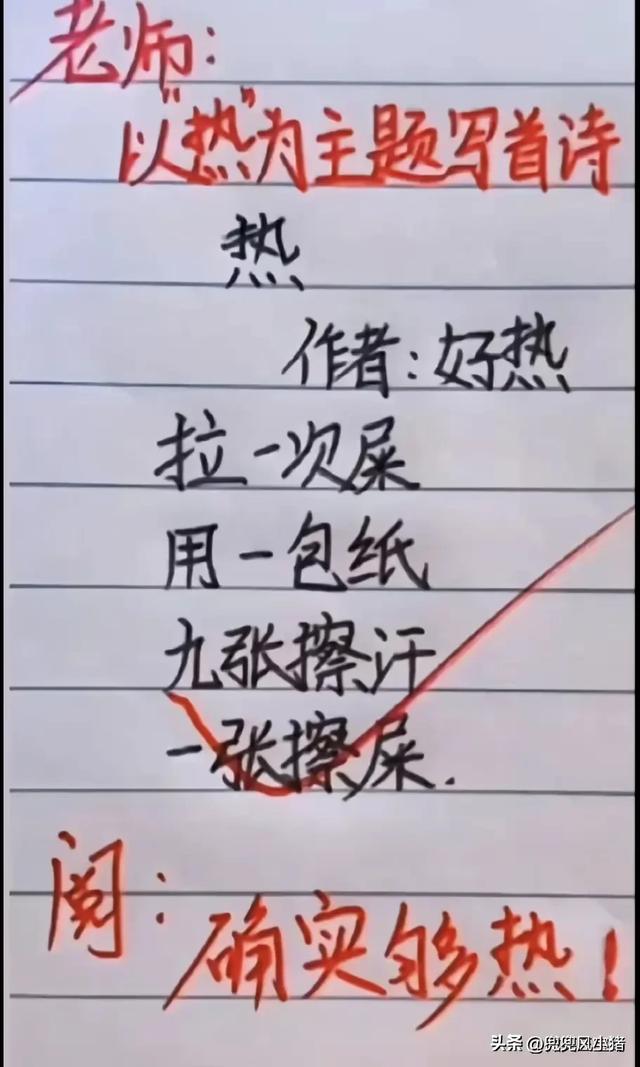 老师：
以"热"为主题写首诗
热
作者：好热
拉一次屎
用一包纸
九张擦汗
一张擦屎.
阅：确实够热！
头条 @兜兜风小猪